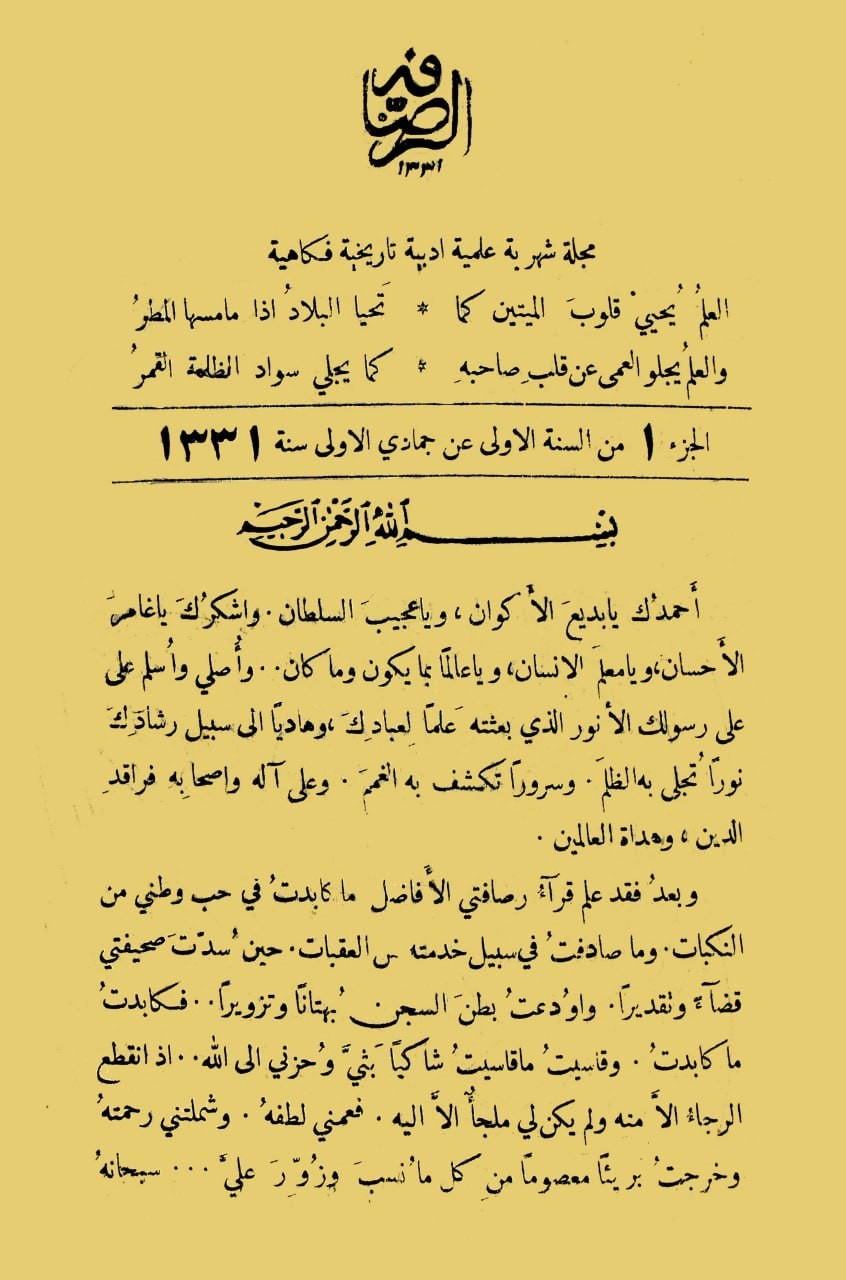 الرصافة
١٣٣١
مجلة شهرية علمية ادبية تاريخية فكاهية
العلمُ يُحييْ قلوبَ الميتين كما * تَحيا البلادُ اذا مامسها المطرُ
والعلمُ يجلو العمى عن قلبِ صاحبهِ * كما يجلي سواد الظلمة القمرُ
الجزء ١ من السنة الاولى عن جمادي الاولى سنة ١٣٣١
بِسْمِ ٱللهِ ٱلرَّحْمٰنِ ٱلرَّحِيمِ
أَحمدُك يابديعَ الأَكوان ، وياعجيبَ السلطان . واشكرُكَ ياغامرَ
الأَحسان، ويامعلمَ الانسان، وياعالمًا بما يكون وما كان . . وأُصلي واُسلم على
على رسولك الأنور الذي بعثته عَلمًا لِعبادِكَ ، وهاديًا الى سبيل رشادِكَ
نورًا تُجلى به الظلمَ . وسرورًا تكشف به الغممَ . وعلى آله واصحابِه فراقدِ
الدين ، وهداة العالمين .
وبعدُ فقد علم قرآءُ رصافتي الأَفاضل ما كابدتُ في حب وطني من
النكبات . وما صادفتُ في سبيل خدمته من العقبات . حين سُدّتَ صحيفتي
قضآءً وتقديرًا . واوُدعتُ بطنَ السجن . بُهتانًا وتزويرًا . . فكابدتُ
ما كابدتُ . وقاسيتُ ماقاسيتُ شاكيًا بَثيَّ وحُزني الى الله . . اذ انقطع
الرجاءُ الاَّ منه ولم يكن لي ملجأٌ الاَّ اليه . فعمني لطفهُ . وشملتني رحمتهُ
وخرجتُ بريئًا معصومًا منِ كل ما نُسبَ وزُوِّرَ عليَّ . . . سبحانهُ